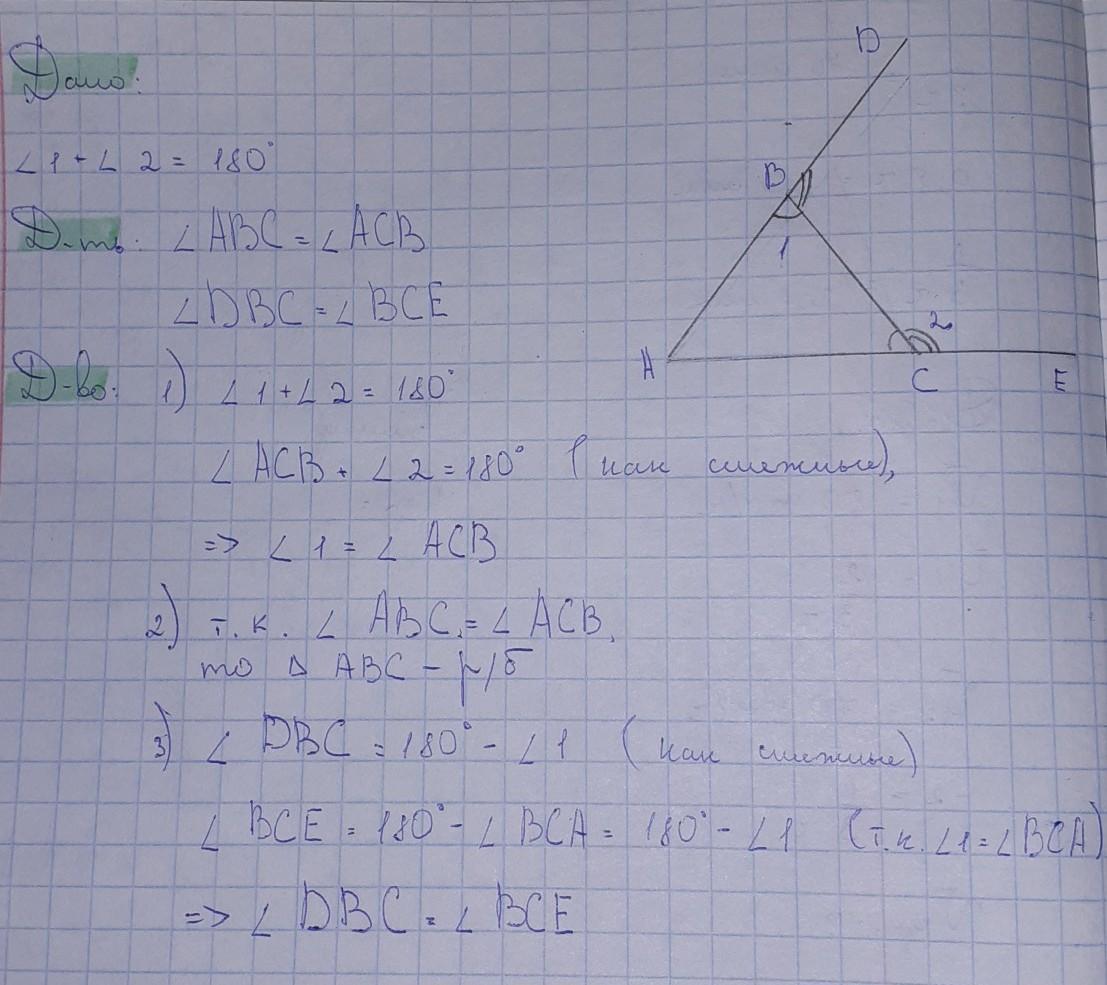 Дано:
∠1 + ∠2 = 180°
Д-ть: ∠ABC = ∠ACB
∠DBC = ∠BCE
Д-во: 1) ∠1 + ∠2 = 180°
∠ACB + ∠2 = 180° (как смежные),
=> ∠1 = ∠ACB
2) т.к. ∠ABC = ∠ACB,
то △ABC – р/б
3) ∠DBC = 180° - ∠1 (как смежные)
∠BCE = 180° - ∠BCA = 180° - ∠1 (т.к. ∠1 = ∠BCA)
=> ∠DBC = ∠BCE
D
B
1
2
A
C
E